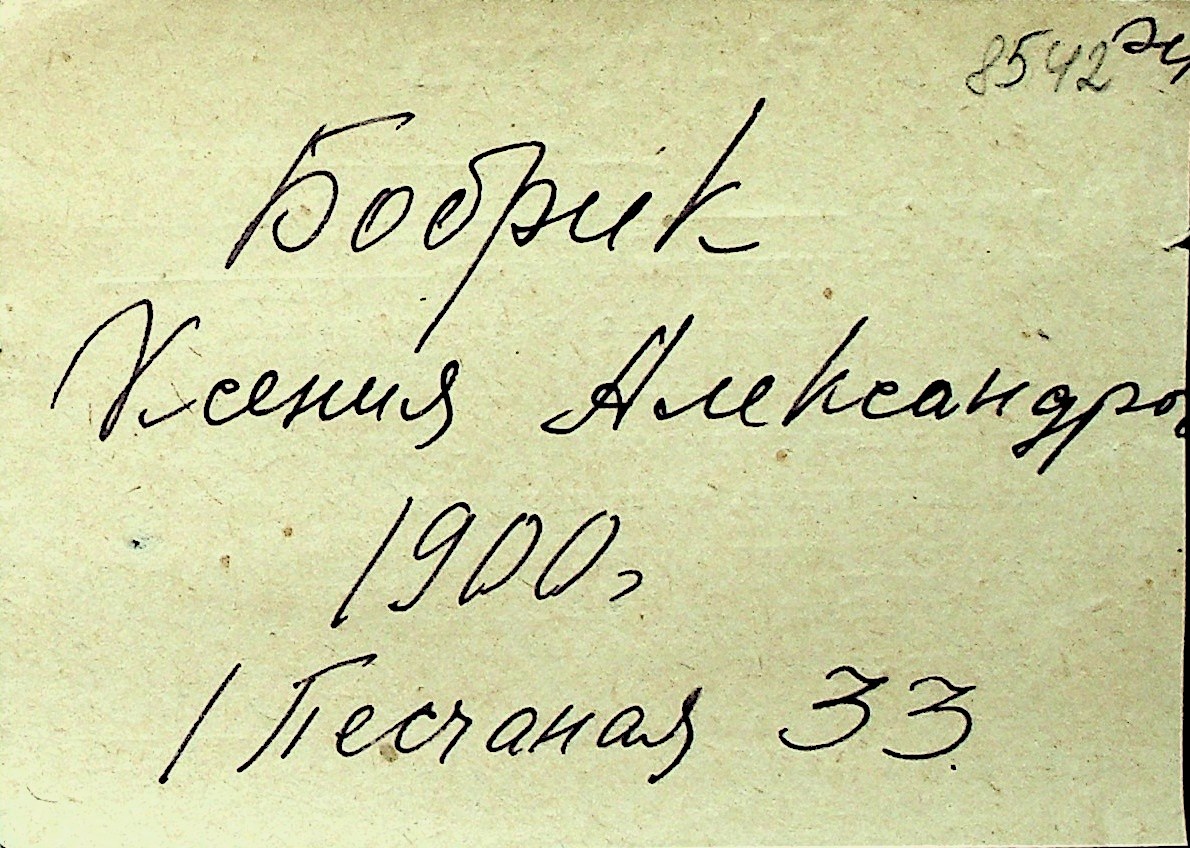 8542
Бобрик
Ксения Александров
1900г
1 Песчаная 33